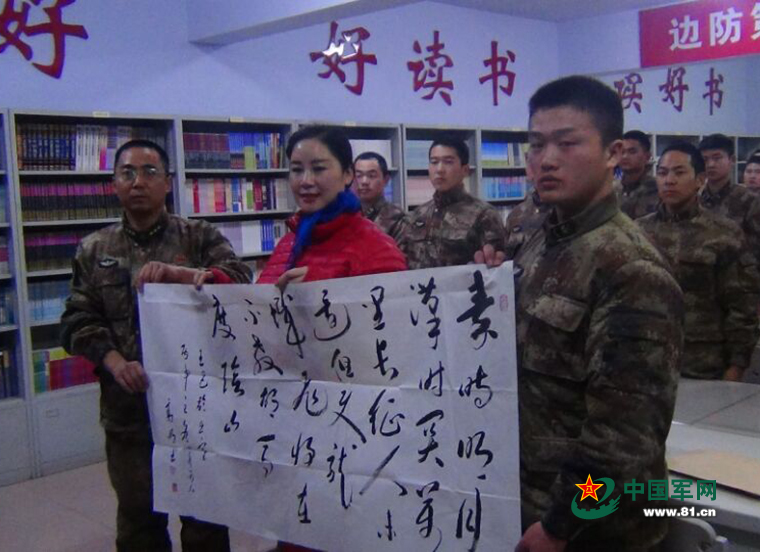 好
好读书
读好书
边防第
秦时明月
漢时关萬
里长征人未
还但使龙
城飛将在
不教胡马
度陰山
王昌龄出塞
中国军网
www.81.cn